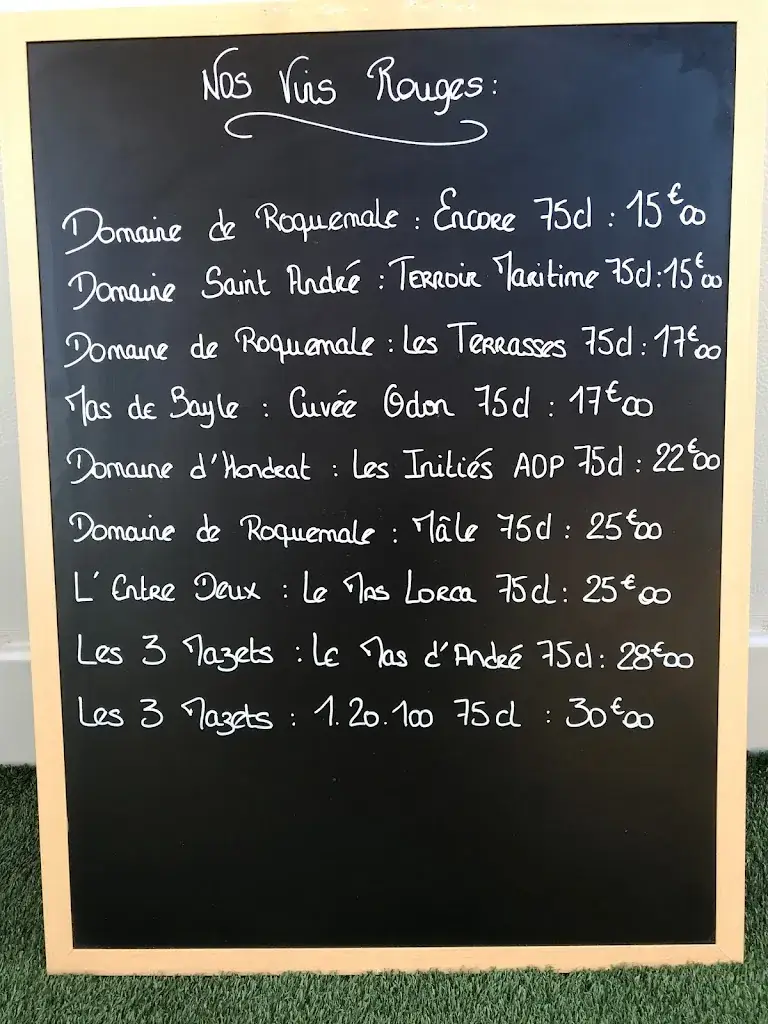 Nos Vins Rouges:
Domaine de Roquemale : Encore 75cl : 15€00
Domaine Saint André : Terroir Maritime 75cl:15€00
Domaine de Roquemale : Les Terrasses 75cl : 17€00
Mas de Bayle : Cuvée Odon 75cl : 17€00
Domaine d'Hondrat : Les Initiés AOP 75cl : 22€00
Domaine de Roquemale : Mâle 75cl : 25€00
L'Entre Deux : Le Mas Lorca 75cl : 25€00
Les 3 Mazets : Le Mas d'André 75cl : 28€00
Les 3 Mazets : 1.20.100 75cl : 30€00